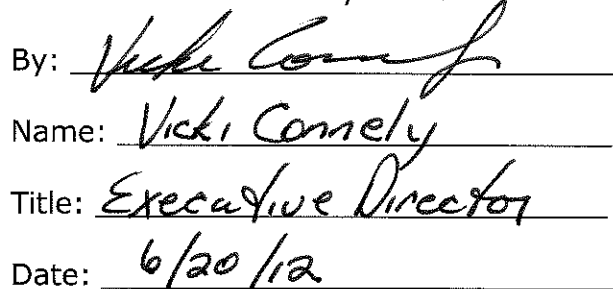 By: Vicki Connely
Name: Vicki Connely
Title: Executive Director
Date: 6/20/12